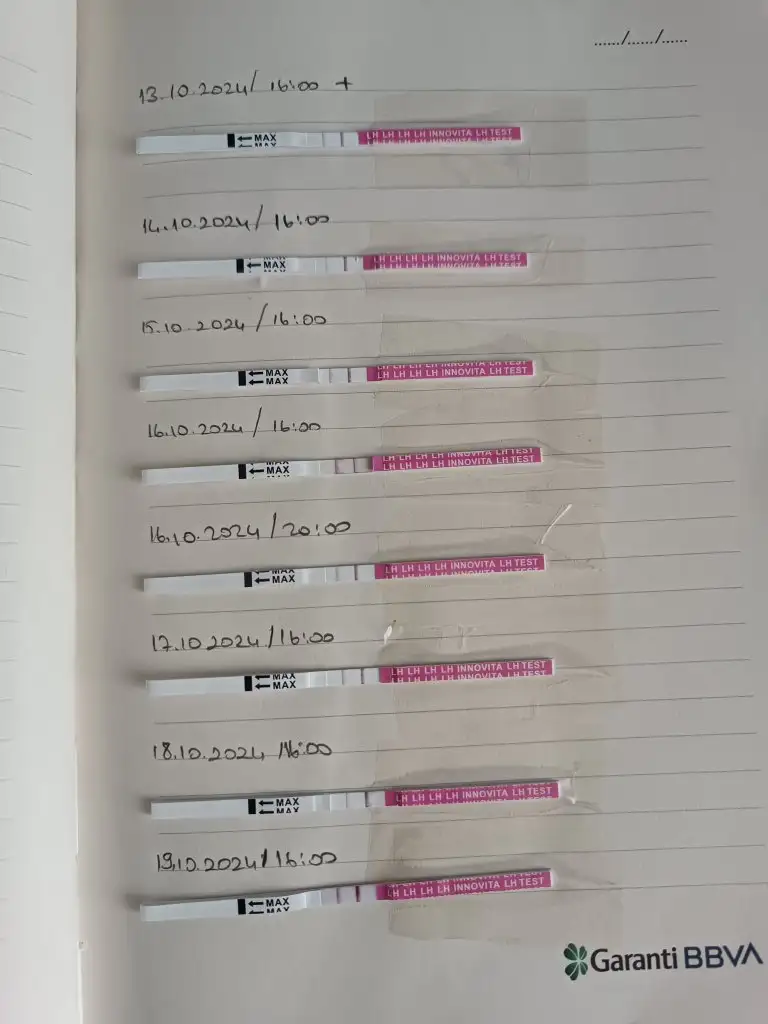 ....../....../......
13.10.2024/ 16:00 +
←MAX LH LH LH LH INNOVITA LH TEST
MAX LH LH LH LH INNOVITA LH TEST
14.10.2024/ 16:00
MAX LH LH LH LH INNOVITA LH TEST
←MAX LH LH LH LH INNOVITA LH TEST
15.10.2024/16:00
←MAX LH LH LH LH INNOVITA LH TEST
←MAX LH LH LH LH INNOVITA LH TEST
16.10.2024/ 16:00
MAX LH LH LH LH INNOVITA LH TEST
←MAX LH LH LH LH INNOVITA LH TEST
16.10.2024/20:00
←MAX LH LH LH LH INNOVITA LH TEST
←MAX LH LH LH LH INNOVITA LH TEST
17.10.2024/16:00
←MAX LH LH LH LH INNOVITA LH TEST
←MAX LH LH LH LH INNOVITA LH TEST
18.10.2024/16:00
←MAX LH LH LH LH INNOVITA LH TEST
←MAX
19.10.2024/16:00
←MAX LH LH LH LH INNOVITA LH TEST
←MAX LH LH LH LH INNOVITA LH TEST
Garanti BBVA